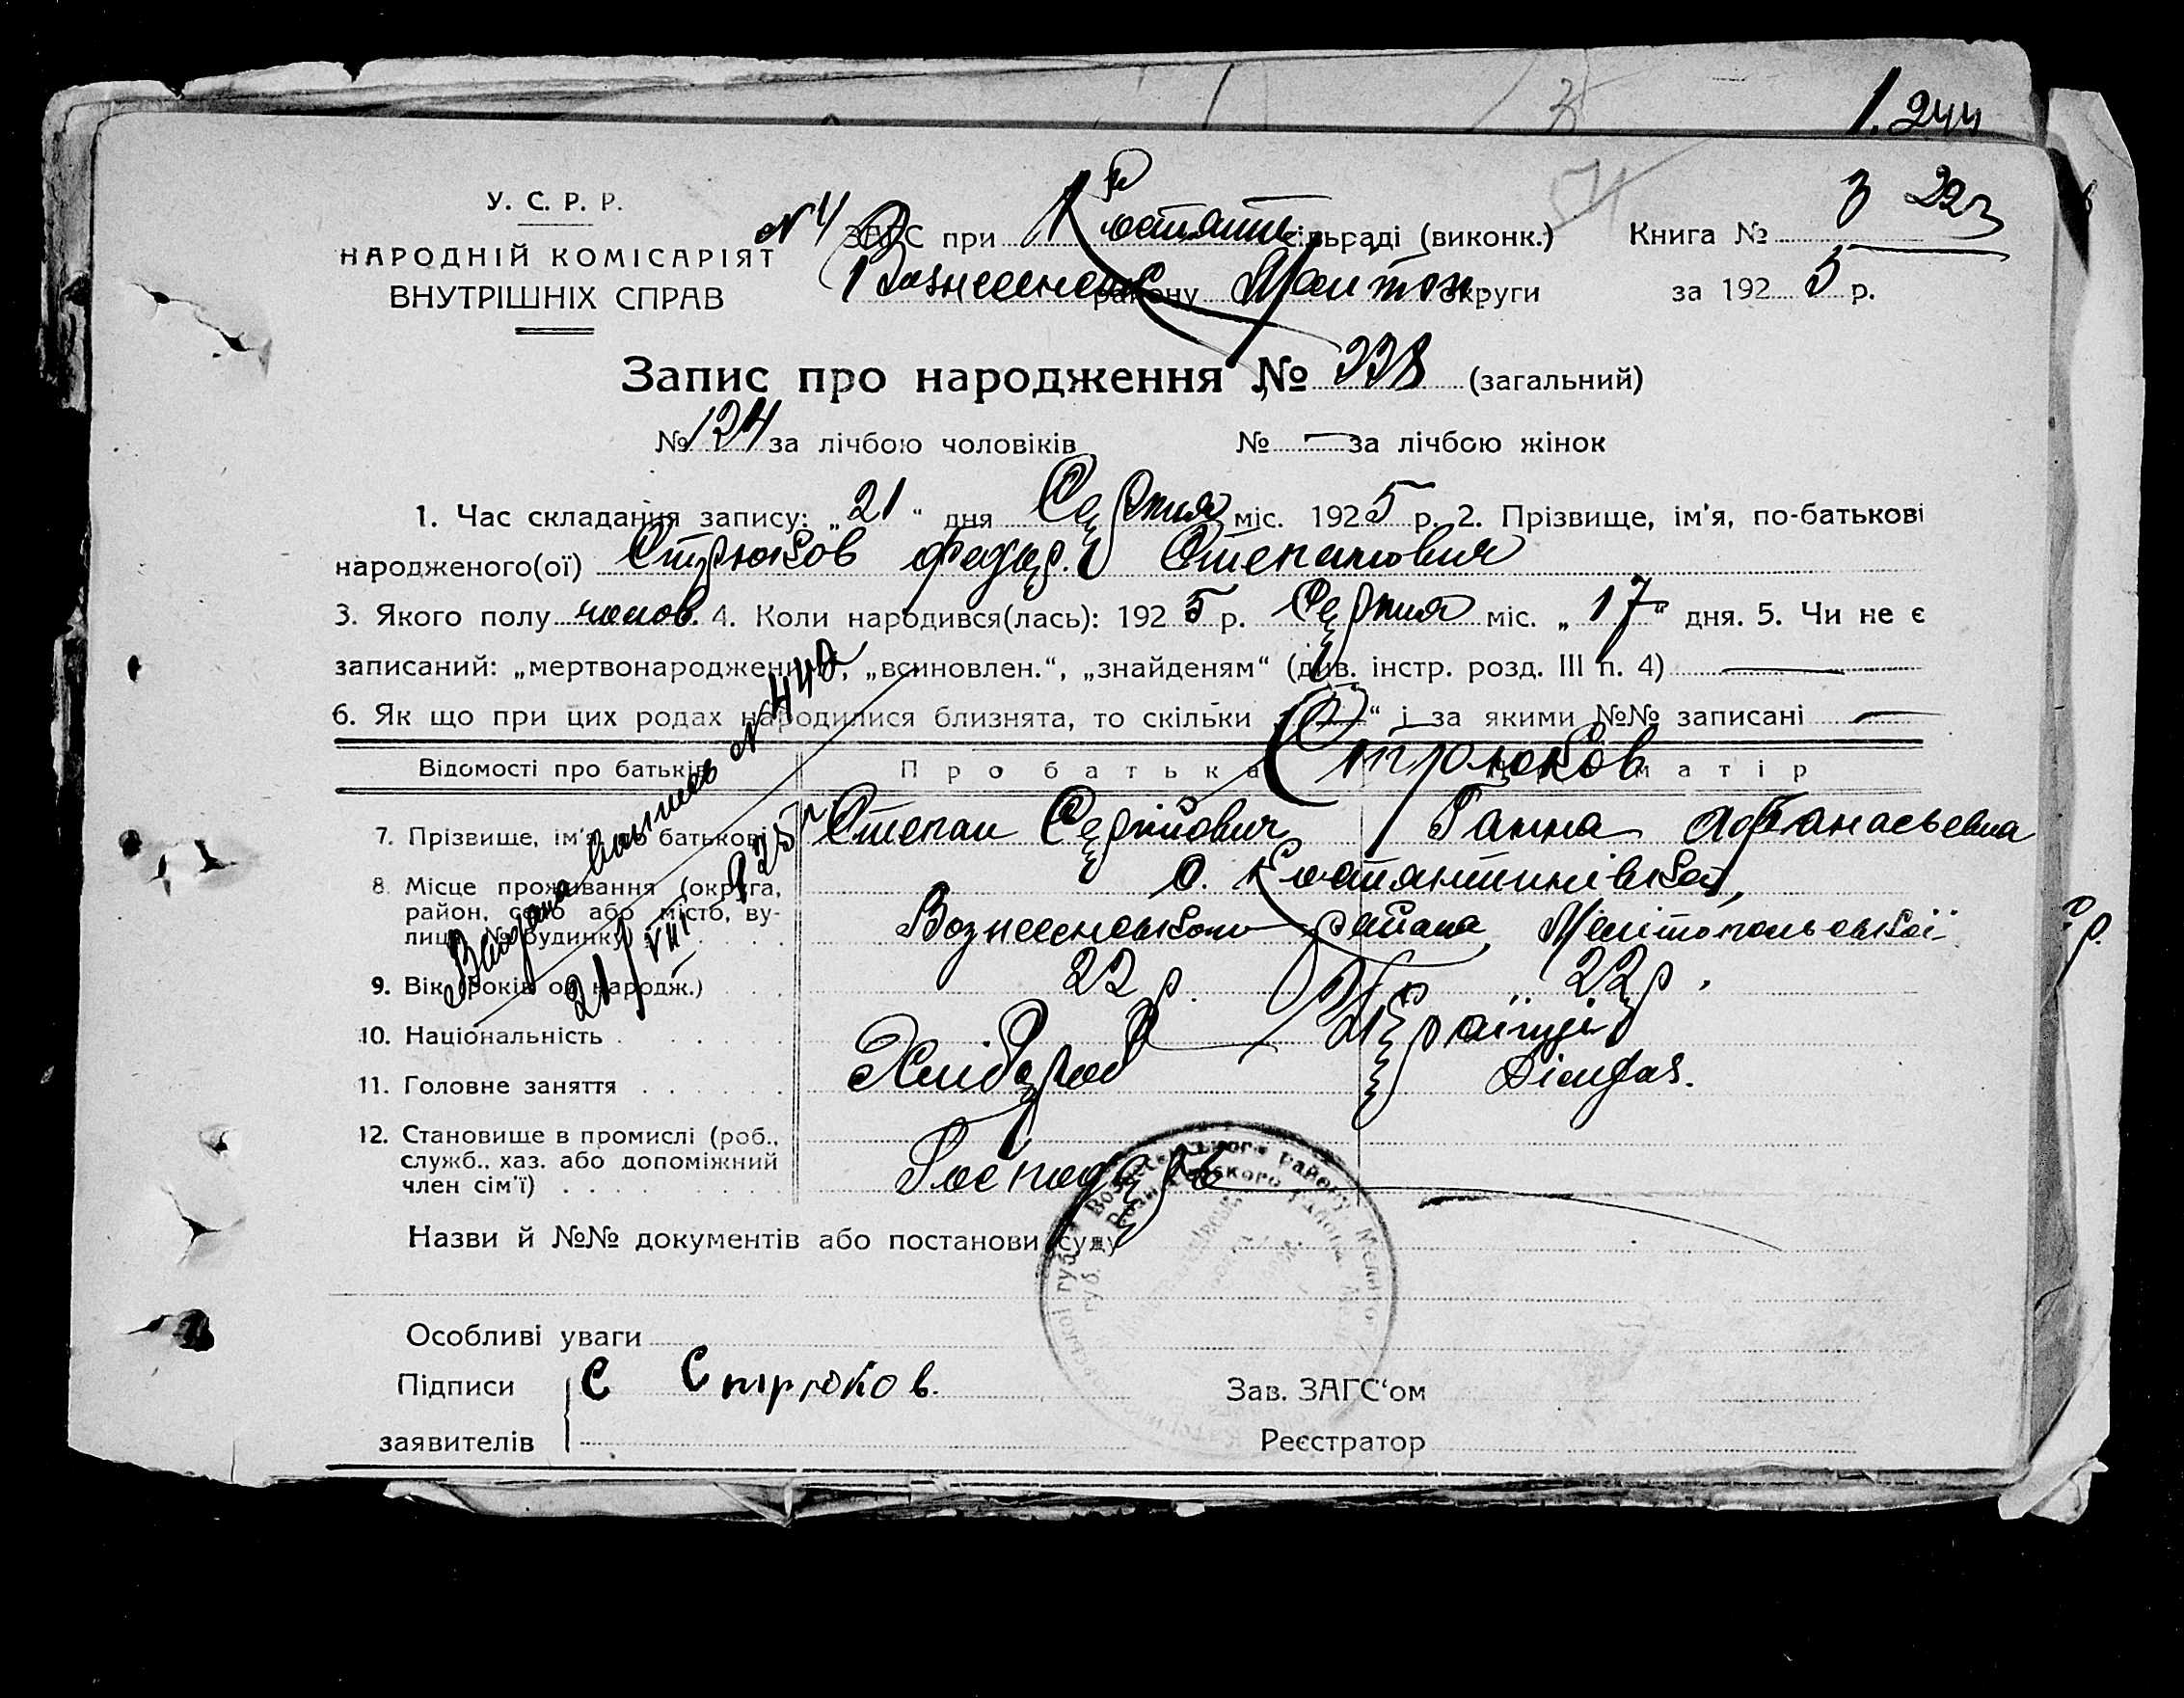 1.244
У. С. Р. Р.
НАРОДНІЙ КОМІСАРІЯТ
ВНУТРІШНІХ СПРАВ
№ 4 ЗАГС при Костянт. сільраді (виконк.) Книга № 3 223
Вознесенськ району Мелітоп. округи за 1925 р.
Запис про народження № 238 (загальний)
№ 124 за лічбою чоловіків № — за лічбою жінок
1. Час складання запису: „21“ дня Серпня міс. 1925 р. 2. Прізвище, ім’я, по-батькові
народженого(ої) Стрюков Федір Степанович
3. Якого полу чолов. 4. Коли народився(лась): 1925 р. Серпня міс. „17“ дня. 5. Чи не є
записаний: „мертвонароджений“, „всиновлен.“, „знайденям“ (див. інстр. розд. III п. 4) —
6. Як що при цих родах народилися близнята, то скільки „—“ і за якими №№ записані —
Відомості про батьків Про батька Про матір
Стрюков
7. Прізвище, ім’я, по батькові Степан Сергійович Ганна Афанасьевна
8. Місце проживання (округа, район, село або місто, вулиця, № будинку) с. Костянтинівка,
Вознесенського района, Мелітопольської
9. Вік (років од народж.) 22 р. 22 р.
10. Національність Українці
11. Головне заняття Хлібороб
12. Становище в промислі (роб., служб., хаз. або допоміжний член сім’ї) Господарь
Видана выпись № 442
21/VIII 925 р
Назви й №№ документів або постанови суду
Особливі уваги
Підписи С Стрюков.
заявителів
Зав. ЗАГС‘ом
Реєстратор